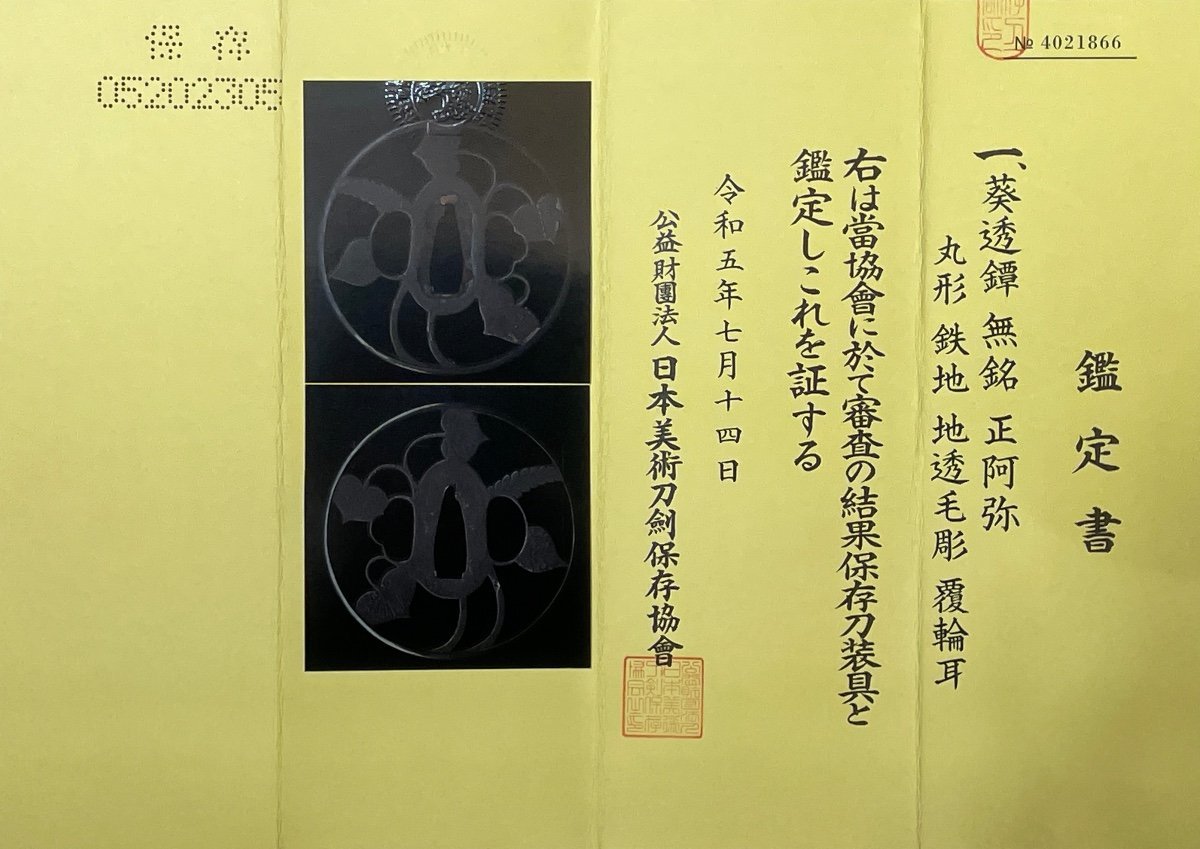 № 4021866
鑑定書
一、葵透鐔 無銘 正阿弥
丸形 鉄地 地透毛彫 覆輪耳
右は當協會に於て審査の結果保存刀装具と
鑑定しこれを証する
令和五年七月十四日
公益財團法人 日本美術刀劍保存協會
保存
05202305